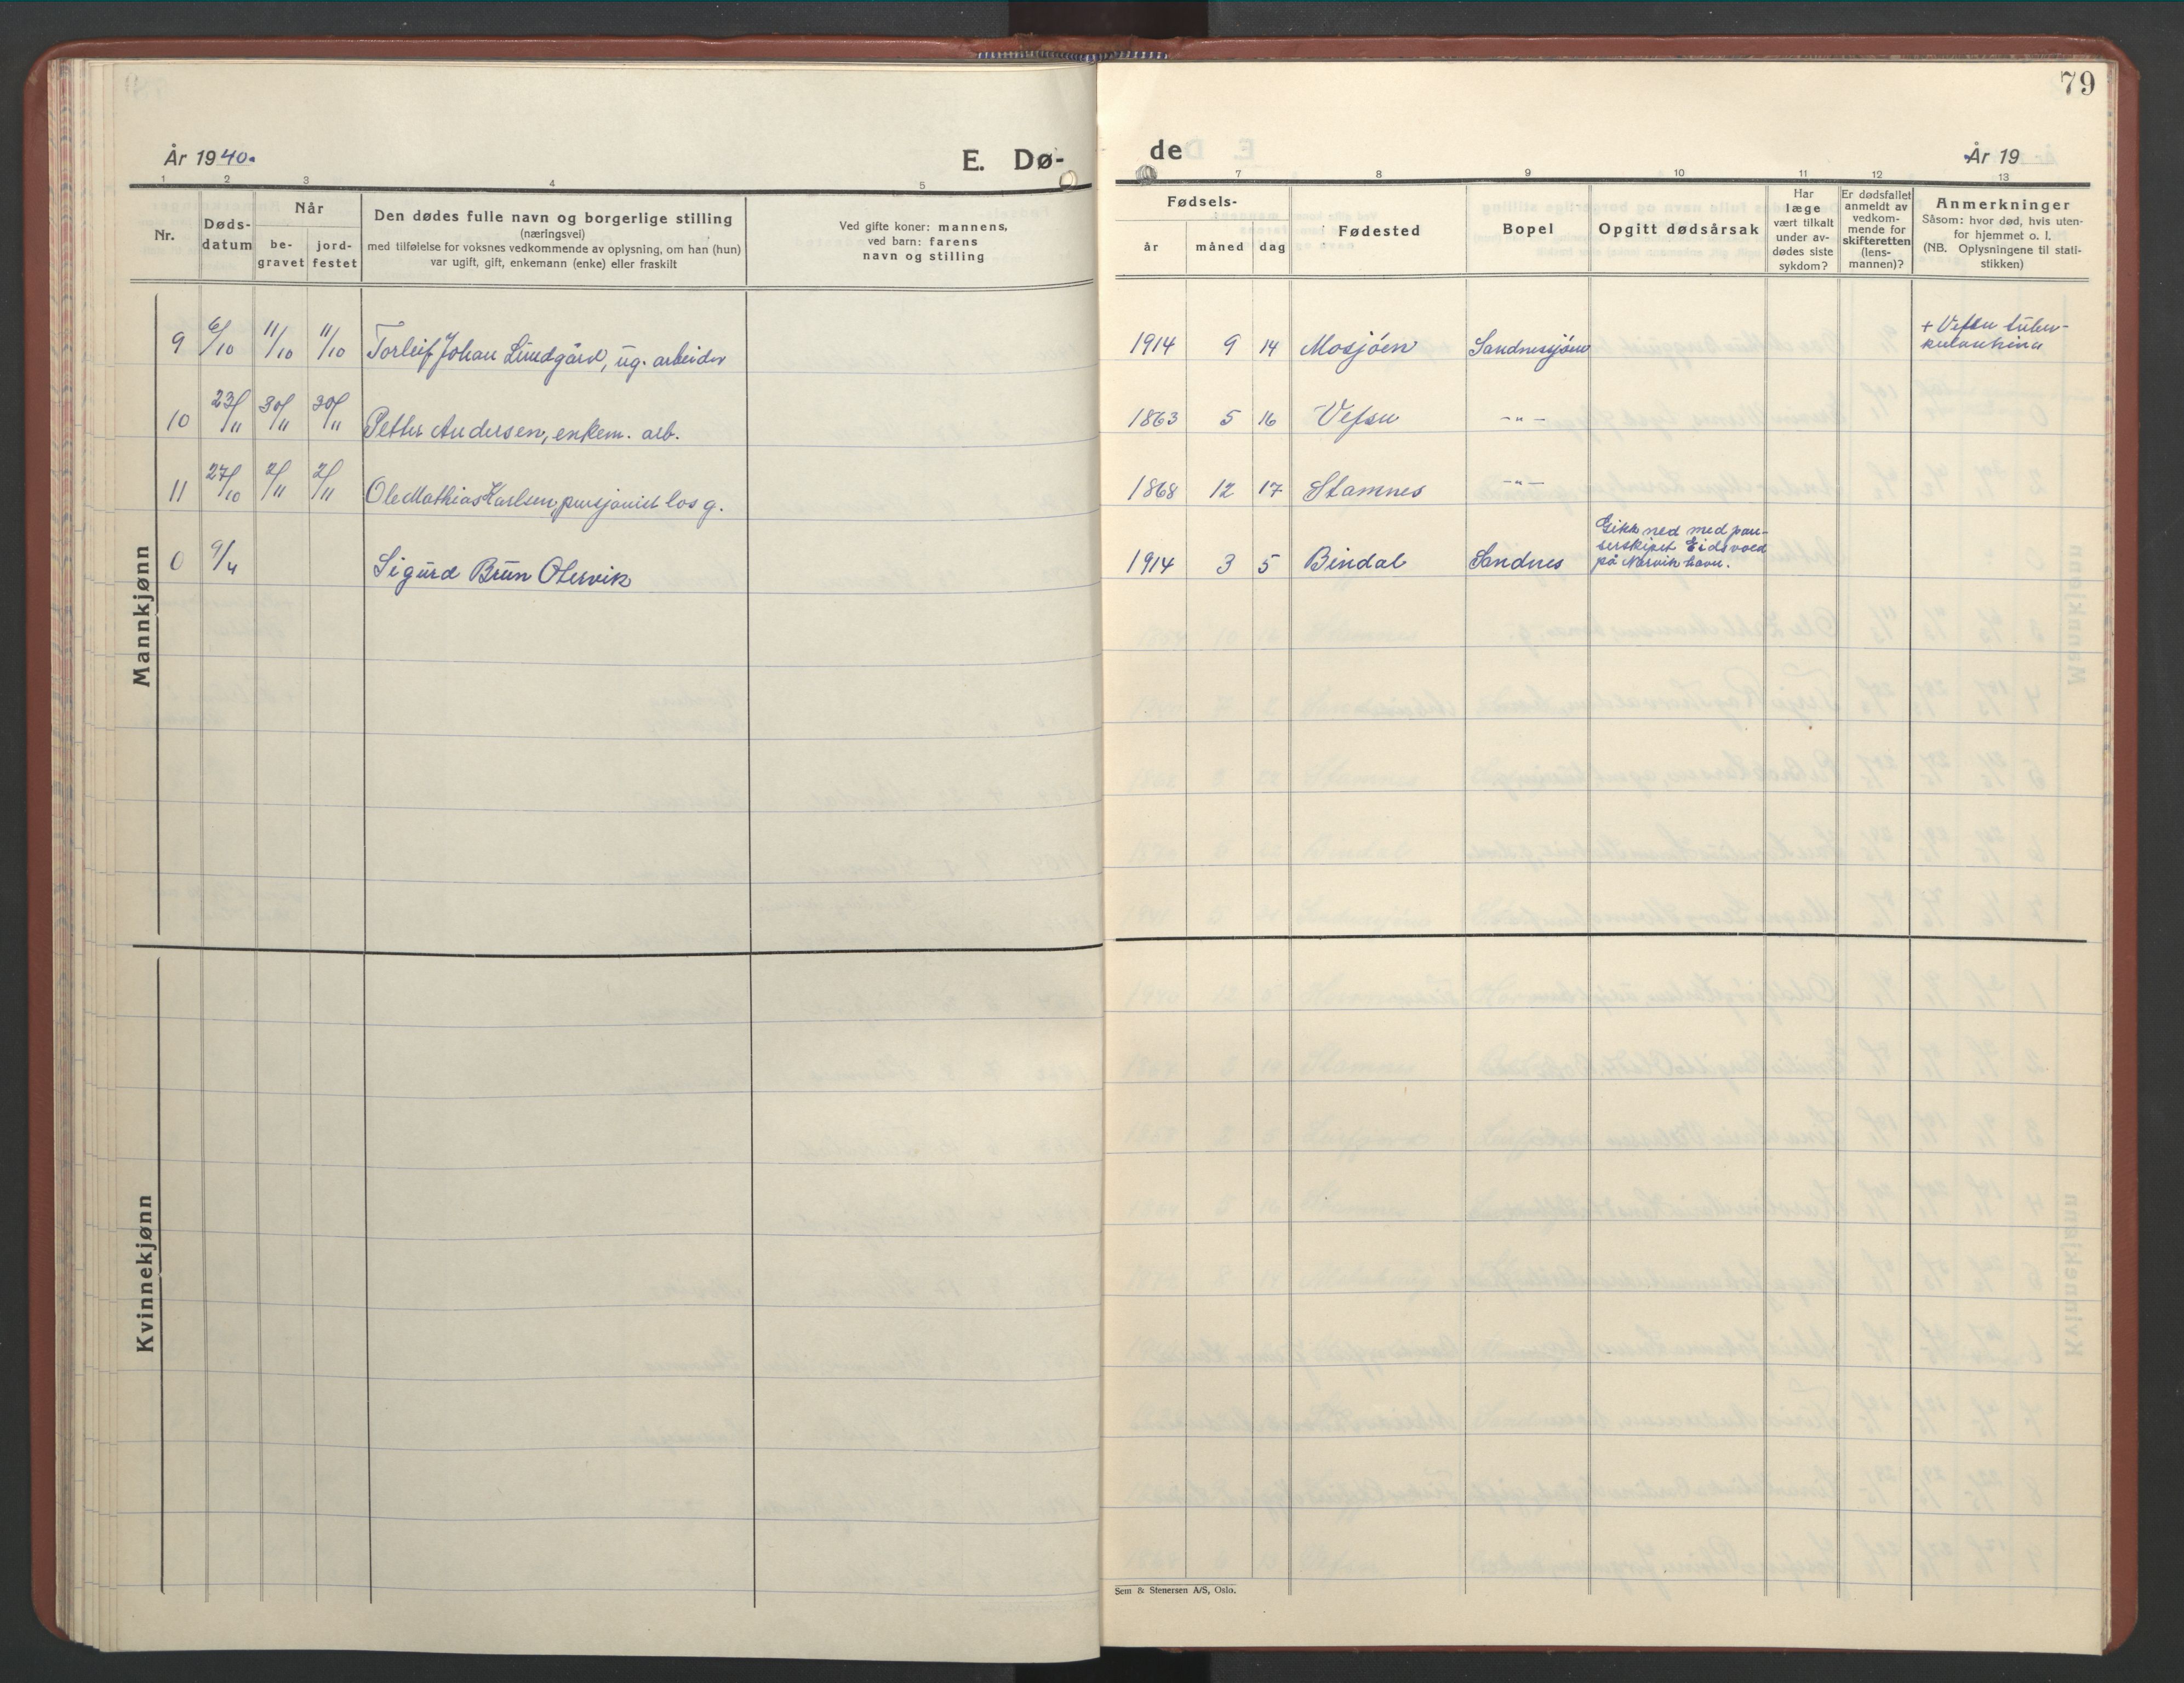 79
År 1940.
E. Dø-
de
År 19
1 2 3 4 5
7 8 9 10 11 12 13
Nr.
Døds-
datum
Når
be-
gravet
jord-
festet
Den dødes fulle navn og borgerlige stilling
(næringsvei)
med tilføielse for voksnes vedkommende av oplysning, om han (hun)
var ugift, gift, enkemann (enke) eller fraskilt
Ved gifte koner: mannens,
ved barn: farens
navn og stilling
Fødsels-
år måned dag
Fødested
Bopel
Opgitt dødsårsak
Har
læge
vært tilkalt
under av-
dødes siste
sykdom?
Er dødsfallet
anmeldt av
vedkom-
mende for
skifteretten
(lens-
mannen)?
Anmerkninger
Såsom: hvor død, hvis uten-
for hjemmet o. l.
(NB. Oplysningene til stati-
stikken)
Mannkjønn
9 6/10 11/10 11/10 Torleif Johan Lundgård, ug. arbeider 1914 9 14 Mosjöen Sandnessjöen
+ Vefsn tuber-
10 23/11 30/11 30/11 Petter Andersen, enkem. arb. 1863 5 16 Vefsn -"-
11 27/10 2/11 2/11 Ole Mathias Karlsen, pensjonist los g. 1868 12 17 Stamnes -"-
0 9/4 Sigurd Brun Olervik 1914 3 5 Bindal Sandnes
Gikk ned med pan-
serskipet Eidsvold
på Narvik havn.
Kvinnekjønn
Sem & Stenersen A/S, Oslo.